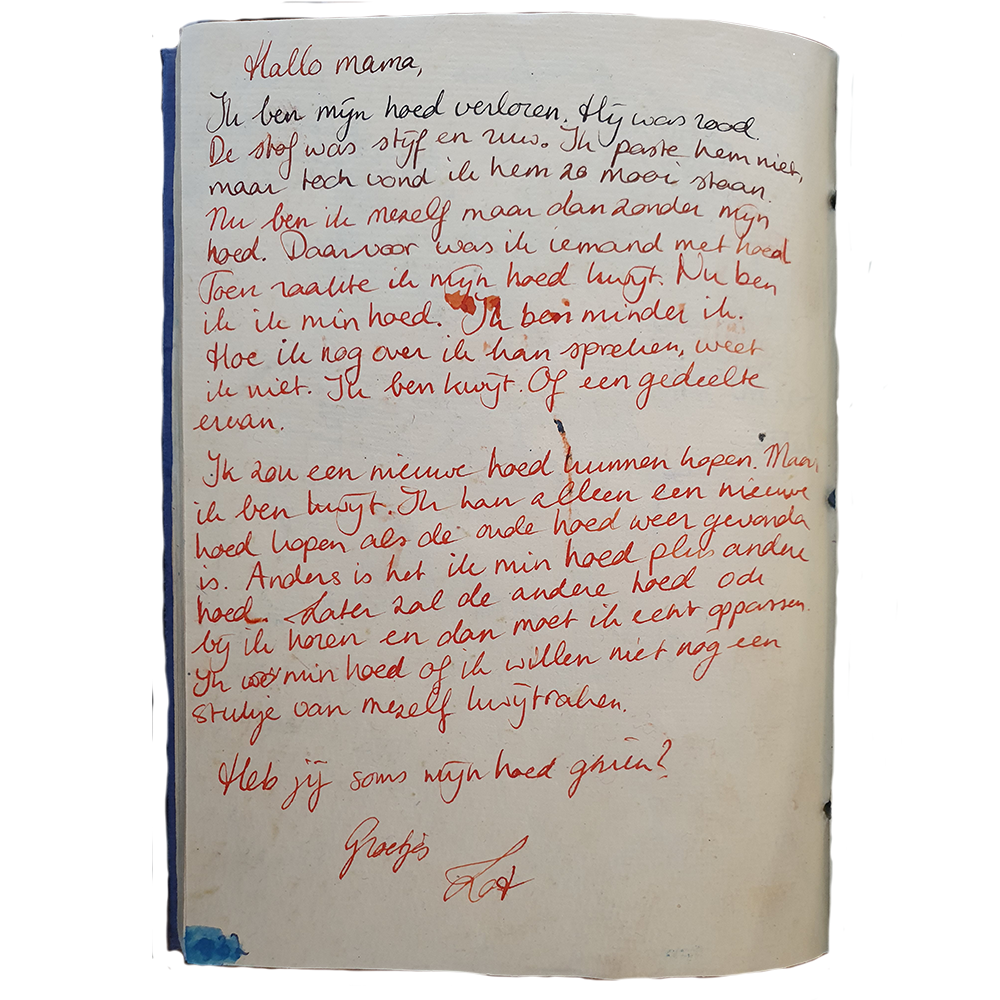 Hallo mama,
Ik ben mijn hoed verloren. Hij was rood.
De stof was stijf en ruw. Ik paste hem niet,
maar toch vond ik hem zo mooi staan.
Nu ben ik mezelf maar dan zonder mijn
hoed. Daarvoor was ik iemand met hoed
Toen raakte ik mijn hoed kwijt. Nu ben
ik ik min hoed. Ik ben minder ik.
Hoe ik nog over ik kan spreken, weet
ik niet. Ik ben kwijt. Of een gedeelte
ervan.
Ik zou een nieuwe hoed kunnen kopen. Maar
ik ben kwijt. Ik kan alleen een nieuwe
hoed kopen als de oude hoed weer gevonde
is. Anders is het ik min hoed plus andere
hoed. Later zal de andere hoed ook
bij ik horen en dan moet ik echt oppassen.
Ik min hoed of ik willen niet nog een
stukje van mezelf kwijtraken.
Heb jij soms mijn hoed gezien?
Groetjes
Lot